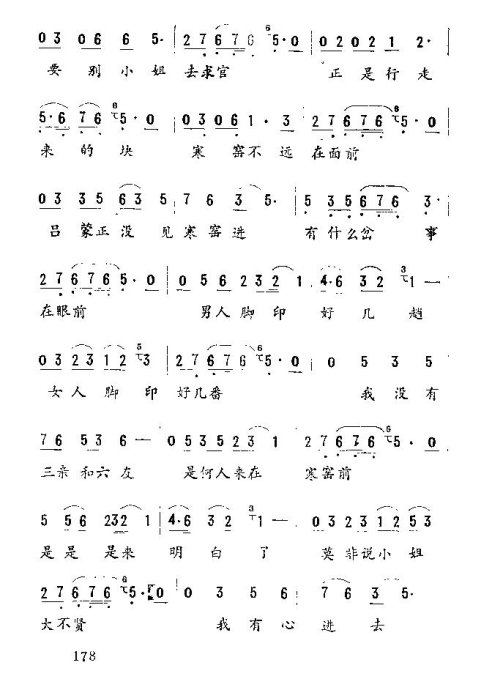 0 3 0 6 6 6 5· | 2 7 6 7 6 6 5·0 | 0 2 0 2 1 2· |
要别小姐去求官 正是行走
5·6 7 6 7 6 5·0 | 0 3 0 6 1·3 | 2 7 6 7 6 6 5·0
来的块 寒窑不远在面前
0 3 3 5 6 3 5 | 7 6 7 6 3 5· | 5 3 5 6 7 6 3·
吕蒙正没见寒窑进 有什么岔事
2 7 6 7 6 5·0 | 0 5 6 2 3 2 1 | 4·6 3 2 3 1 —
在眼前 男人脚印好几趟
0 3 2 3 1 2 5 3 | 2 7 6 7 6 6 5·0 | 0 5 3 5
女人脚印好几番 我没有
7 6 5 3 6 — | 0 5 3 5 2 3 1 | 2 7 6 7 6 6 5·0
三亲和六友 是何人来在寒窑前
5 5 6 2 3 2 1 | 4·6 3 2 3 1 — | 0 3 2 3 1 2 5 3
是是是来明白了 莫非说小姐
2 7 6 7 6 6 5·0 | 0 3 5 6 | 7 6 3 5·
大不贤 我有心进去
178